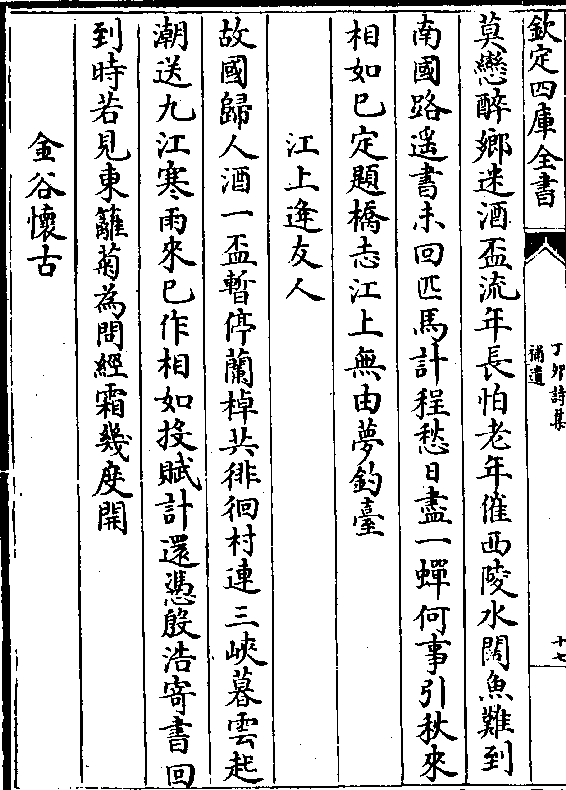 欽定四庫全書
丁卯詩集
補遺
十七
莫戀醉鄉迷酒盃流年長怕老年催西陵水闊魚難到
南國路遥書未回匹馬計程愁日盡一蟬何事引秋來
相如已定題橋志江上無由夢釣臺
江上逢友人
故國歸人酒一盃暫停蘭棹共徘徊村連三峽暮雲起
潮送九江寒雨來已作相如投賦計還憑殷浩寄書回
到時若見東籬菊為問經霜幾度開
金谷懷古